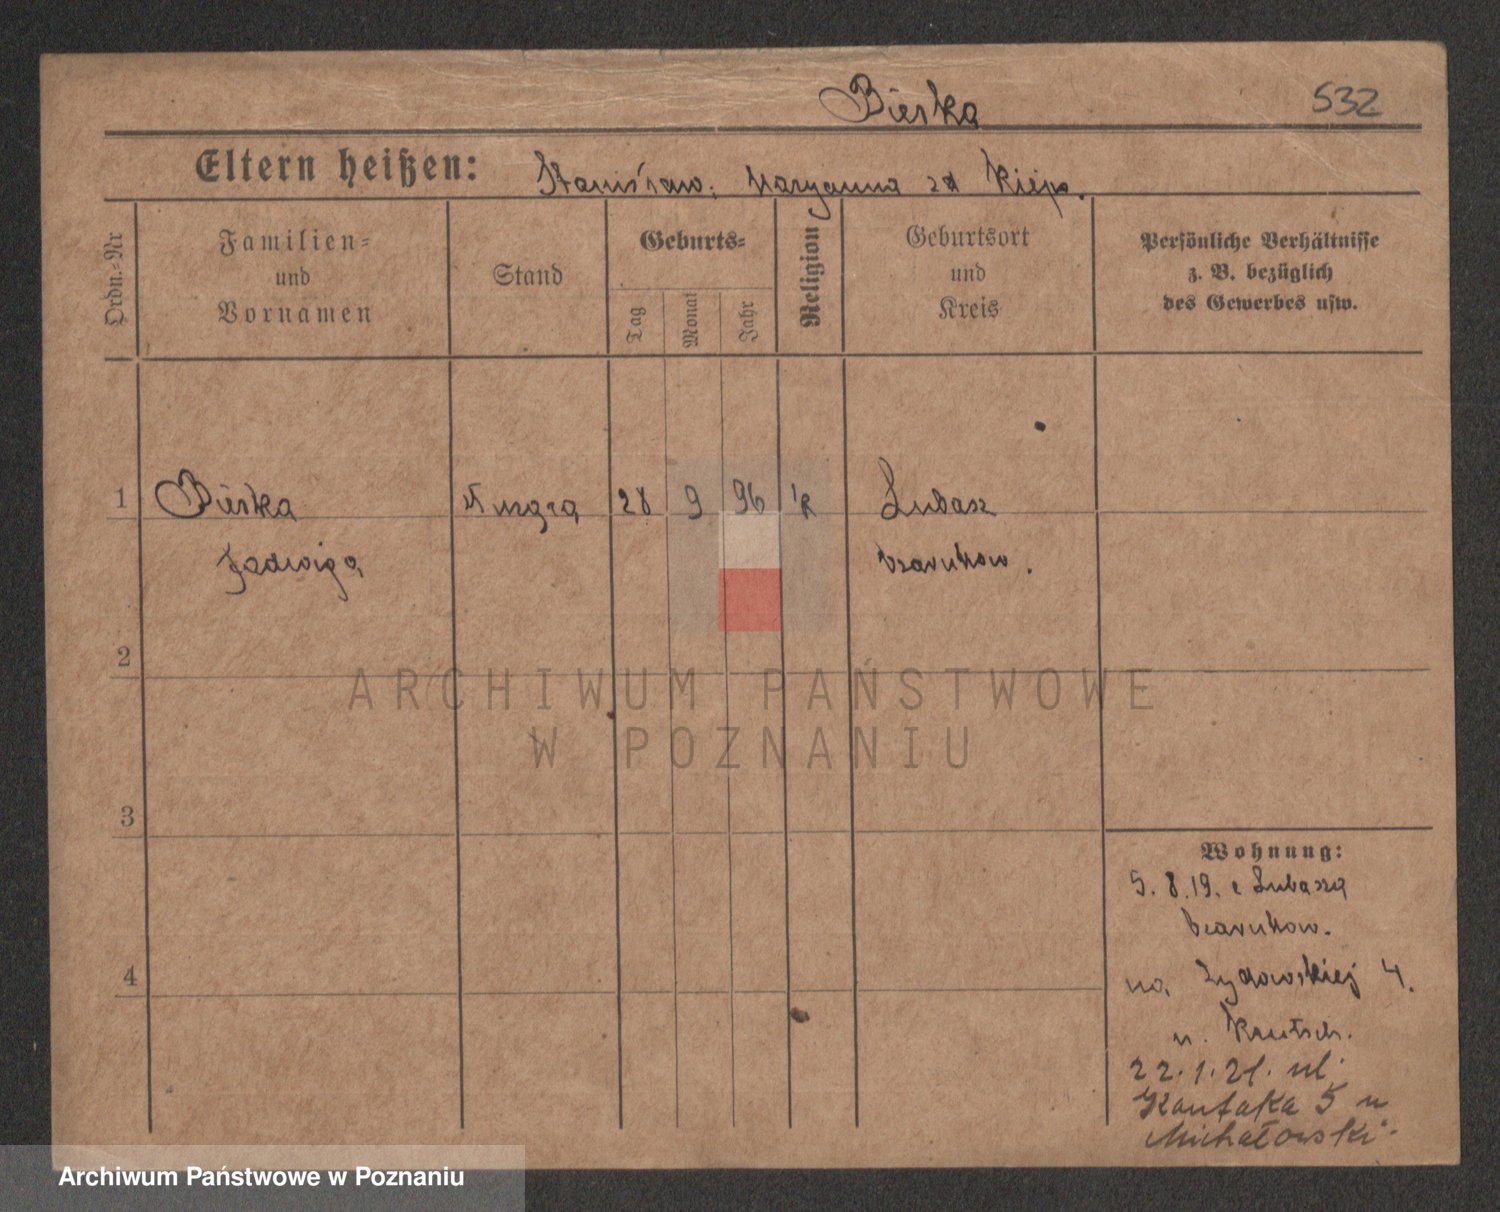 Bierka
532
Eltern heißen: Stanisław, Maryanna zd
Ordn.-Nr
Familien- und Vornamen
Stand
Geburts-
Tag
Monat
Jahr
Religion
Geburtsort und Kreis
Persönliche Verhältnisse z. B. bezüglich des Gewerbes usw.
1 Bierka 28 9 96 k Lubasz
Jadwiga Czarnkow.
2
3
4
Wohnung:
5.8.19. z Lubasza
Czarnkow.
na Żydowskiej 4.
u.
22.1.21. ul.
Kantaka 5 u
Michałowski
ARCHIWUM PAŃSTWOWE
W POZNANIU
Archiwum Państwowe w Poznaniu